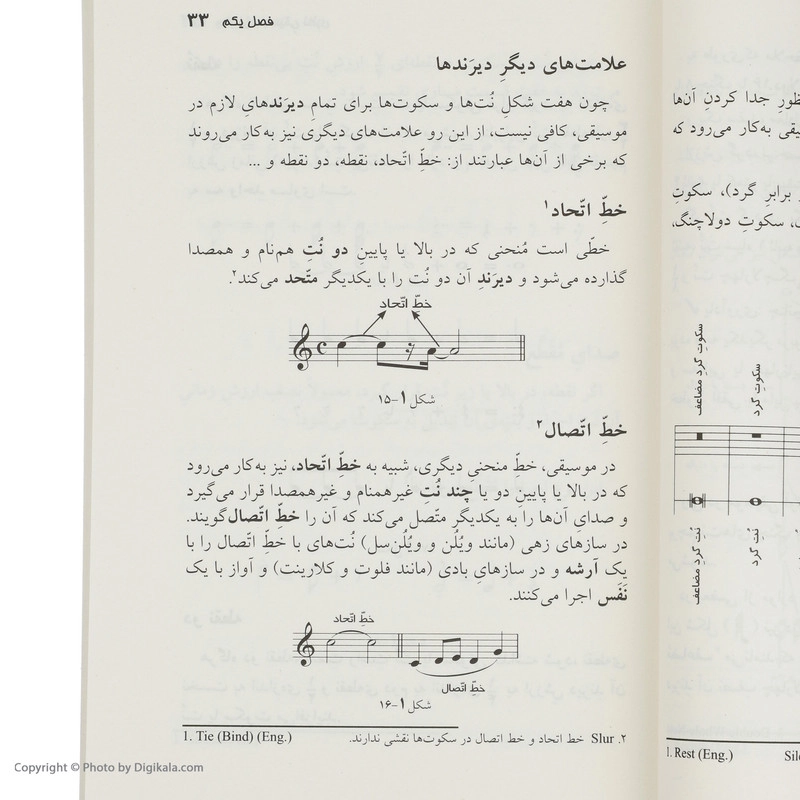 فصل یکم ۳۳
علامت‌های دیگرِ دیرَندها
چون هفت شکلِ نُت‌ها و سکوت‌ها برای تمامِ دیرَندهایِ لازم در
موسیقی، کافی نیست، از این رو علامت‌های دیگری نیز به‌کار می‌روند
که برخی از آن‌ها عبارتند از: خطِّ اتّحاد، نقطه، دو نقطه و ...
خطِّ اتّحاد۱
خطّی است مُنحنی که در بالا یا پایینِ دو نُتِ هم‌نام و همصدا
گذارده می‌شود و دیرَندِ آن دو نُت را با یکدیگر متّحد می‌کند۲.
خطِّ اتّحاد
شکل ۱-۱۵
خطِّ اتّصال۲
در موسیقی، خطِّ منحنیِ دیگری، شبیه به خطِّ اتّحاد، نیز به‌کار می‌رود
که در بالا یا پایینِ دو یا چند نُتِ غیرهمنام و غیرهمصدا قرار می‌گیرد
و صدایِ آن‌ها را به یکدیگر متّصل می‌کند که آن را خطِّ اتّصال‌گویند.
در سازهای زهی (مانند ویُلُن و ویُلُن‌سل) نُت‌های با خطِّ اتّصال را با
یک آرشه و در سازهایِ بادی (مانند فلوت و کلارینت) و آواز با یک
نَفَس اجرا می‌کنند.
خطِّ اتّحاد
خطِّ اتّصال
شکل ۱-۱۶
1. Tie (Bind) (Eng.)
۲. Slur خط اتحاد و خط اتصال در سکوت‌ها نقشی ندارند.
جدا کردنِ آن‌ها
به‌کار می‌رود که
برابرِ گرد)، سکوتِ
سکوتِ دولاچنگ،
سکوتِ گردِ مضاعف
سکوتِ گرد
نُت گردِ مضاعف
نُت گرد
1. Rest (Eng.)
Copyright © Photo by Digikala.com